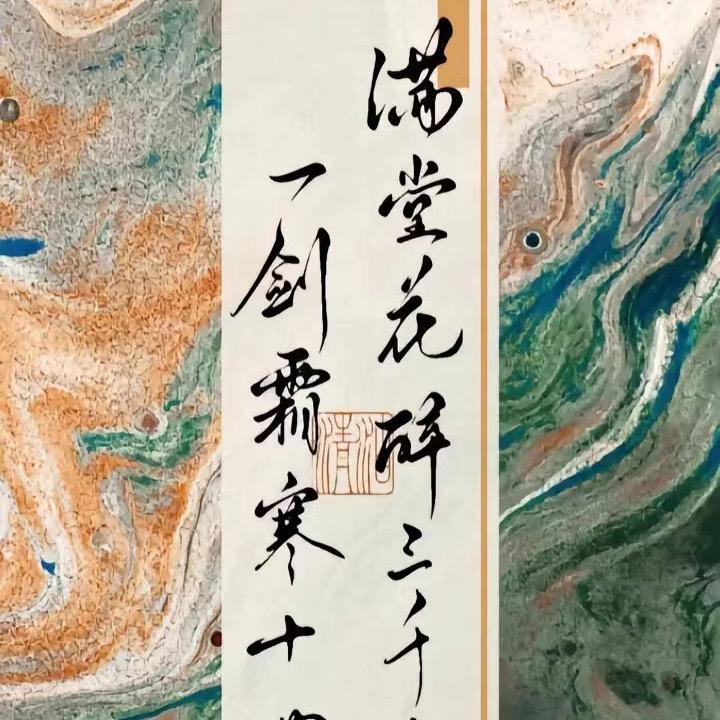 满堂花醉三千
一剑霜寒十
清